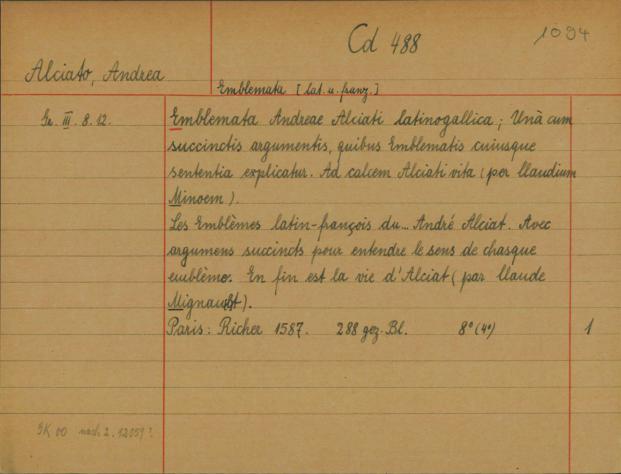 Cd 488
1094
Alciato, Andrea
Emblemata [lat. u. franz.]
Gr. III. 8. 12.
Emblemata Andreae Alciati latinogallica; Unà cum
succinctis argumentis, quibus Emblematis cuiusque
sententia explicatur. Ad calcem Alciati vita (per Claudium
Minoem).
Les Emblèmes latin-françois du... André Alciat. Avec
argumens succincts pour entendre le sens de chasque
emblème. En fin est la vie d'Alciat (par Claude
Mignault).
Paris: Richer 1587. 288 gez. Bl. 8° (4°) 1
GK 00 nach 2. 12059?